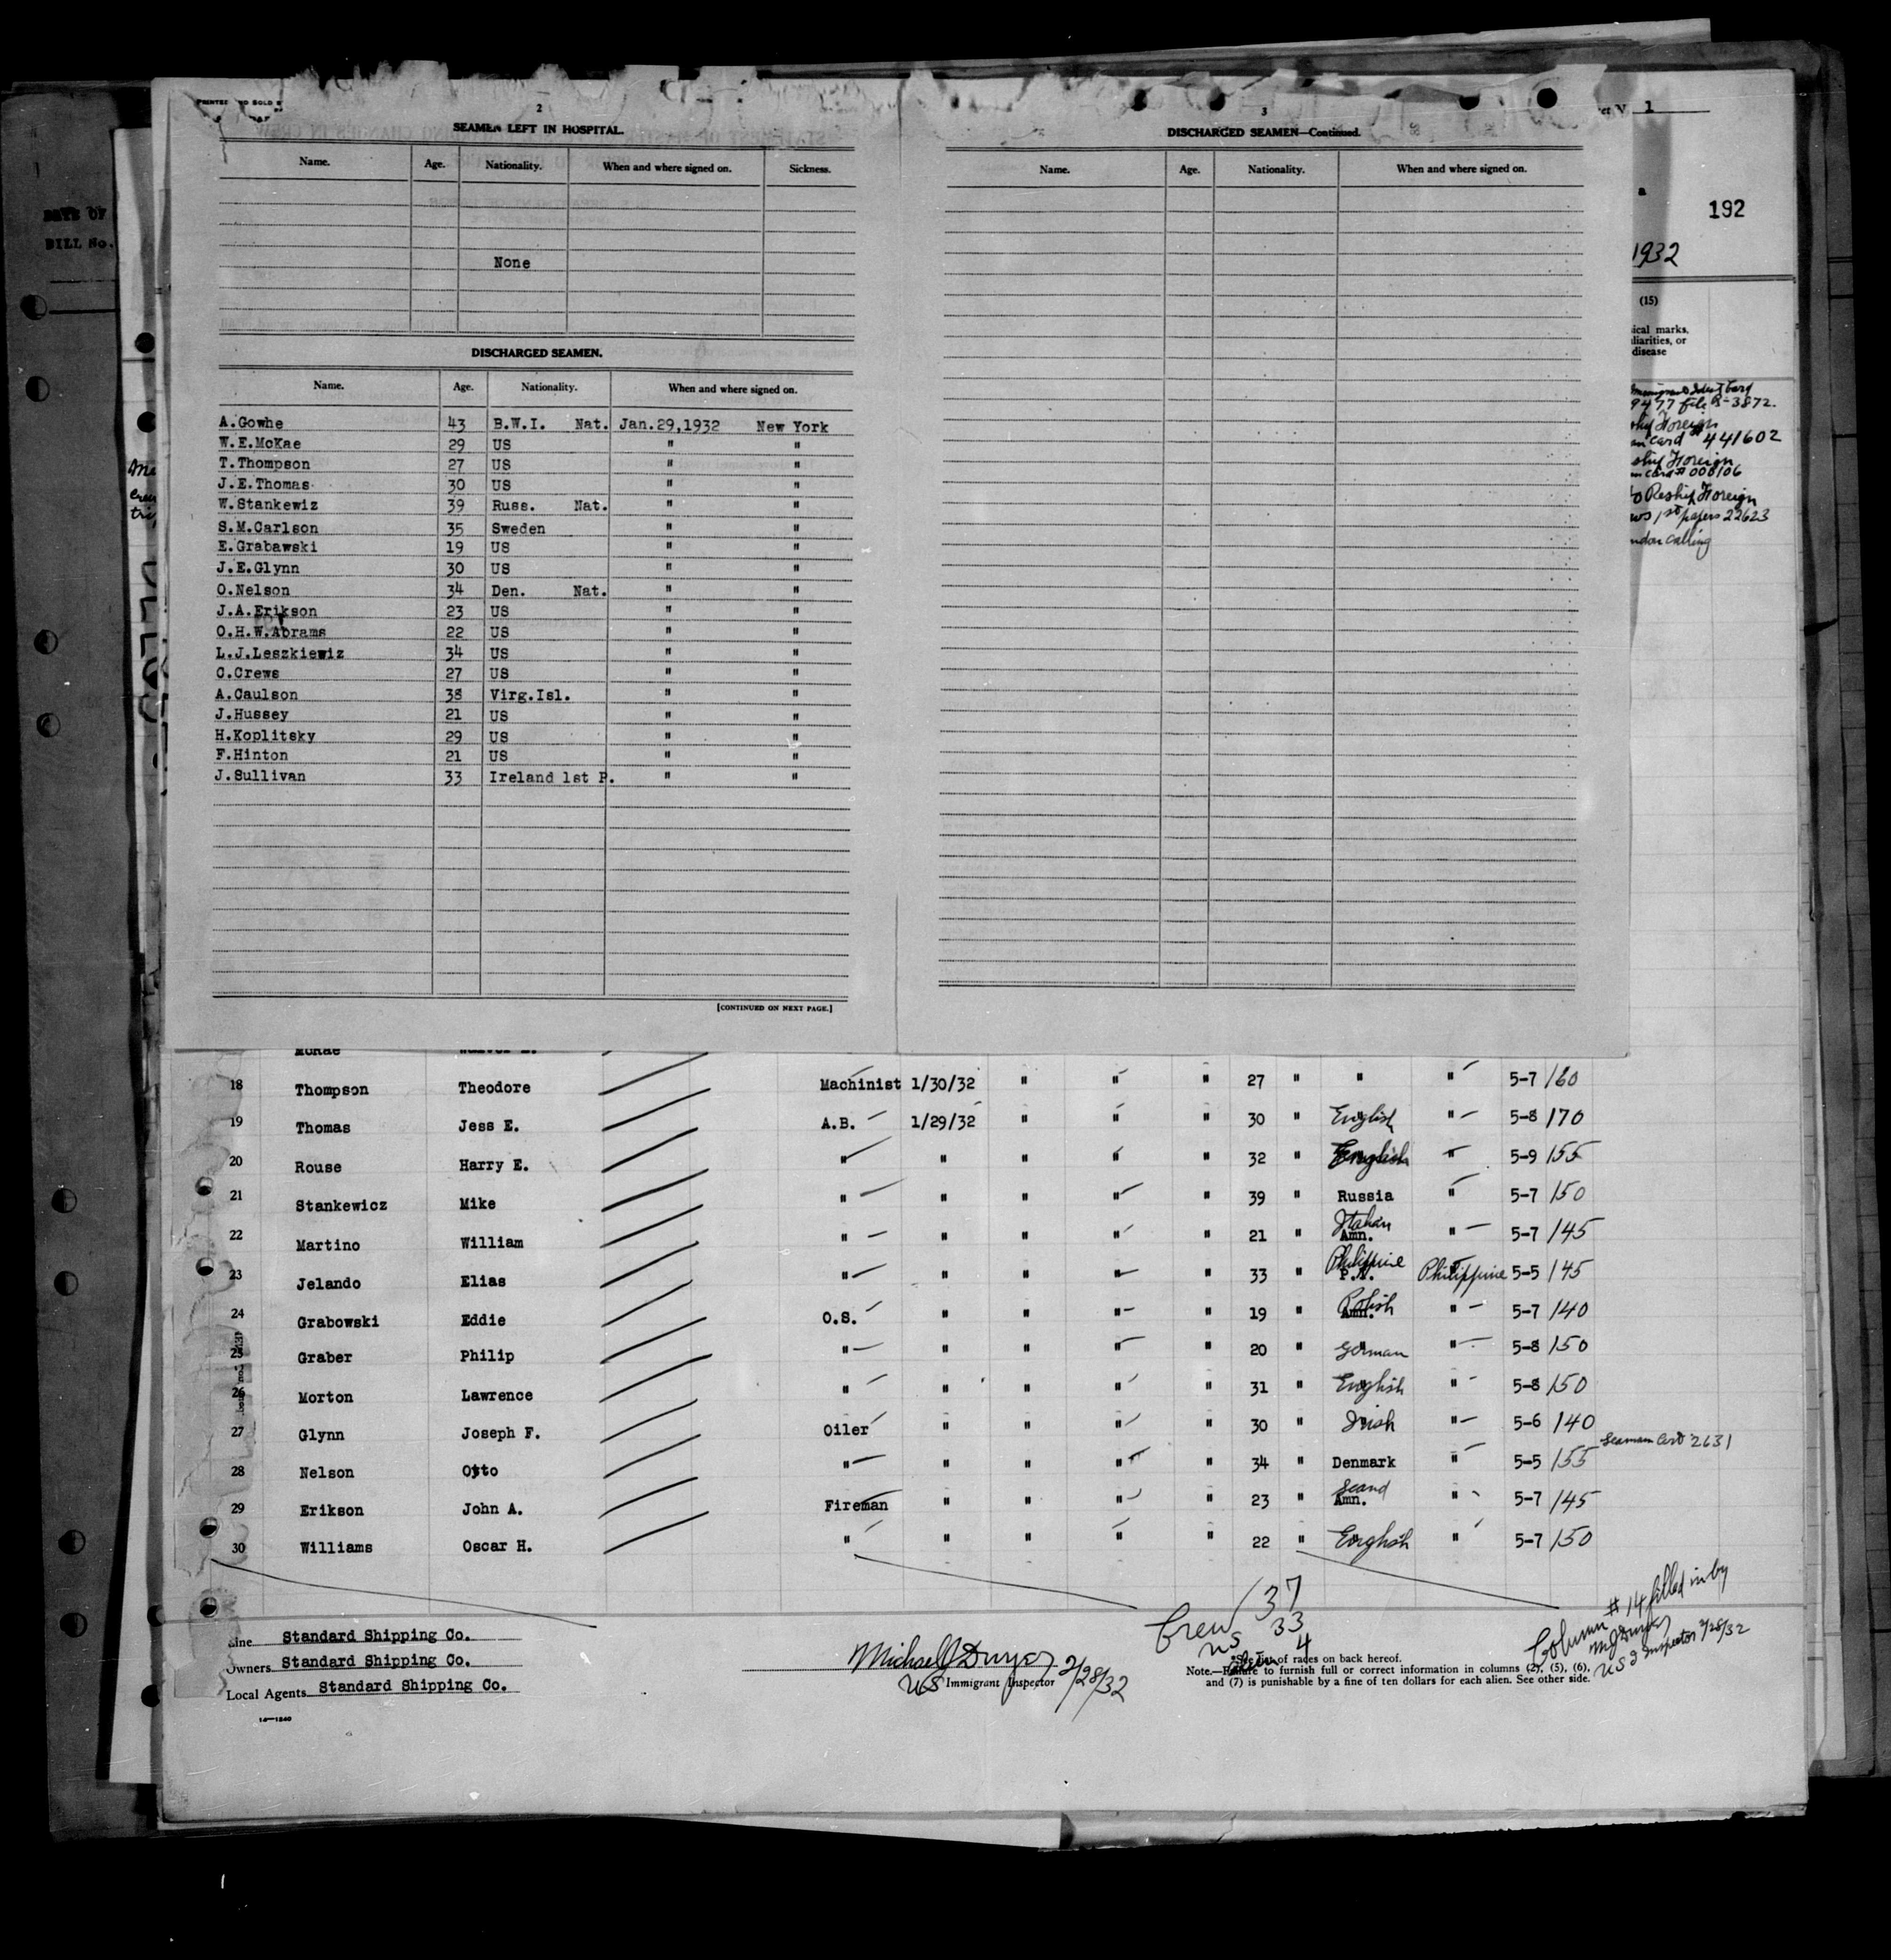 DATE OF
BILL No.
2
SEAMEN LEFT IN HOSPITAL.
Name. Age. Nationality. When and where signed on. Sickness.
None
DISCHARGED SEAMEN.
Name. Age. Nationality. When and where signed on.
A.Gowhe 43 B.W.I. Nat. Jan.29,1932 New York
W.E.McKae 29 US " "
T.Thompson 27 US " "
J.E.Thomas 30 US " "
W.Stankewiz 39 Russ. Nat. " "
S.M.Carlson 35 Sweden " "
E.Grabawski 19 US " "
J.E.Glynn 30 US " "
O.Nelson 34 Den. Nat. " "
J.A.Erikson 23 US " "
O.H.W.Abrams 22 US " "
L.J.Leszkiewiz 34 US " "
C.Crews 27 US " "
A.Caulson 38 Virg.Isl. " "
J.Hussey 21 US " "
H.Koplitsky 29 US " "
F.Hinton 21 US " "
J.Sullivan 33 Ireland 1st P. " "
[CONTINUED ON NEXT PAGE.]
3
DISCHARGED SEAMEN—Continued.
Name. Age. Nationality. When and where signed on.
1
192
1932
(15)
ical marks,
liarities, or
disease
9477 file 3872.
Foreign
card #441602
ship Foreign
card # 006106
to Reship Foreign
1st papers 22623
calling
McKae
18 Thompson Theodore Machinist 1/30/32 " " " 27 " " " 5-7 160
19 Thomas Jess E. A.B. 1/29/32 " " " 30 " English " 5-8 170
20 Rouse Harry E. " " " " 32 " English " 5-9 155
21 Stankewicz Mike " " " " " 39 " Russia " 5-7 150
22 Martino William " " " " " 21 " Italian Amn. " 5-7 145
23 Jelando Elias " " " " " 33 " Philippine P.I. Philippine 5-5 145
24 Grabowski Eddie O.S. " " " " 19 " Polish Amn. " 5-7 140
25 Graber Philip " " " " " 20 " German " 5-8 150
26 Morton Lawrence " " " " " 31 " English " 5-8 150
27 Glynn Joseph F. Oiler " " " " 30 " Irish " 5-6 140
28 Nelson Otto " " " " " 34 " Denmark " 5-5 155 Seaman Cert 2631
29 Erikson John A. Fireman " " " " 23 " Scand Amn. " 5-7 145
30 Williams Oscar H. " " " " " 22 " English " 5-7 150
Crew 37
US 33
Alien 4
Column #14 filled in by
M J Dwyer
US I Inspector 2/28/32
Line Standard Shipping Co.
Owners Standard Shipping Co.
Local Agents Standard Shipping Co.
Michael J Dwyer 2/28/32
US Immigrant Inspector
of races on back hereof.
Note.—Failure to furnish full or correct information in columns (2), (5), (6),
and (7) is punishable by a fine of ten dollars for each alien. See other side.
14—1240